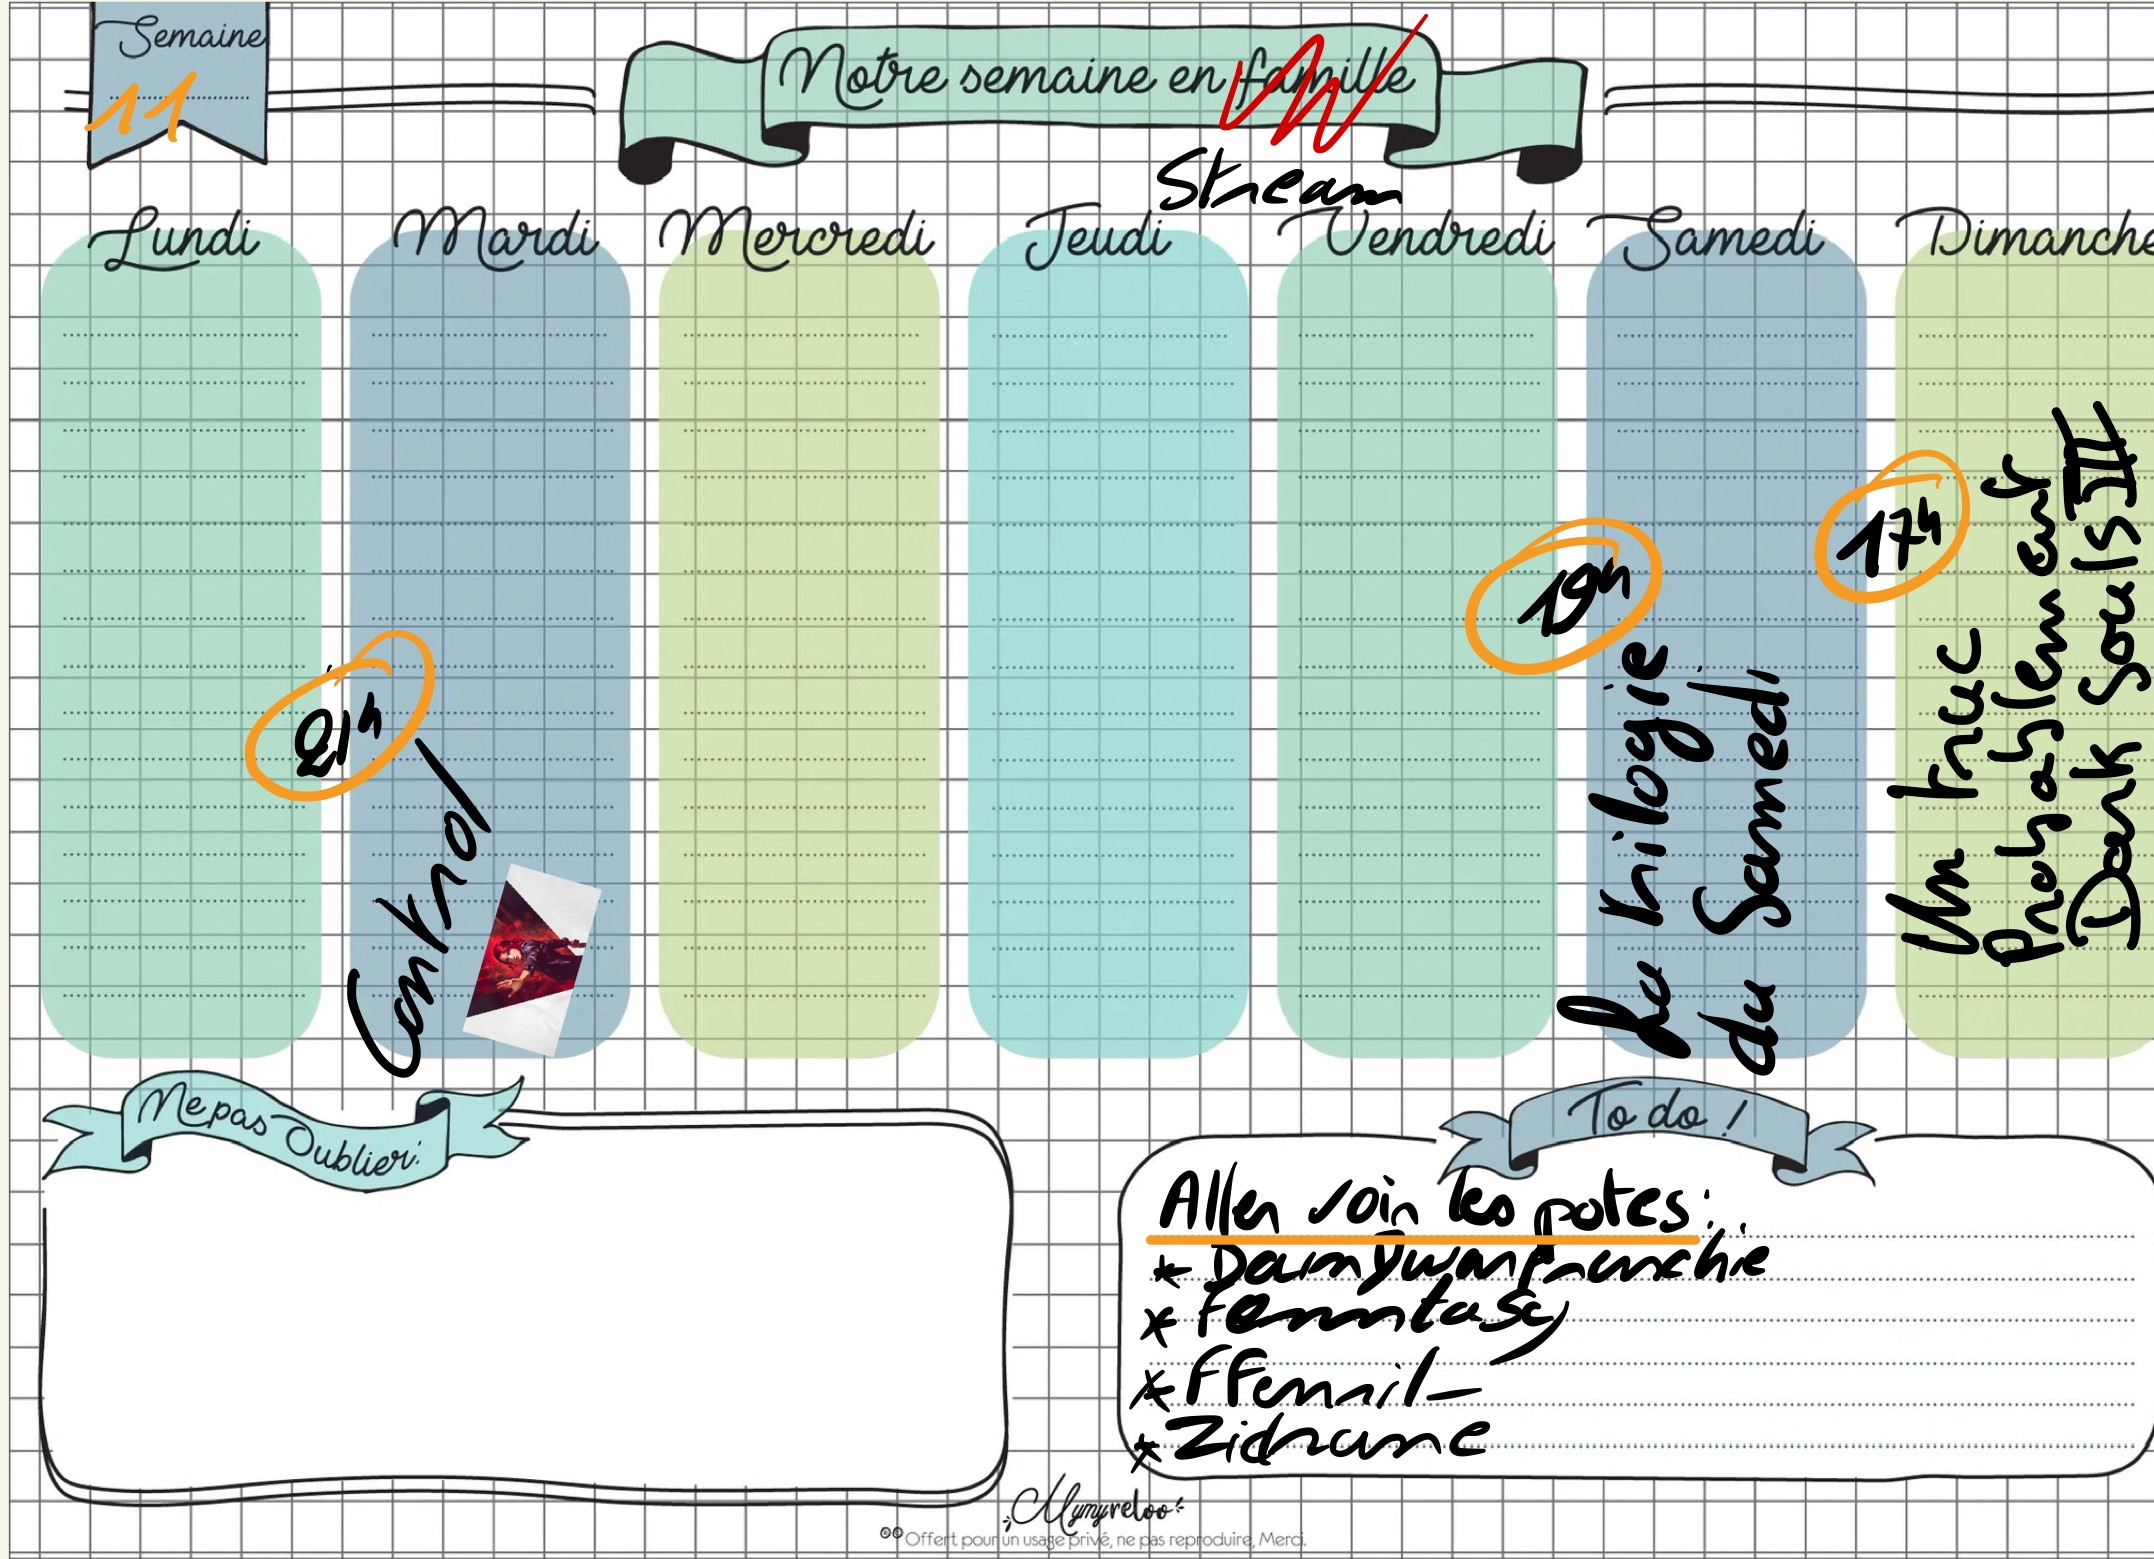 Semaine
11
Notre semaine en famille
Stream
Lundi
Mardi
Mercredi
Jeudi
Vendredi
Samedi
Dimanche
21h
Control
19h
La trilogie
du Samedi
17h
Un truc
Probablement
Dark Souls III
Ne pas
Oublier!
To do !
Aller voir les potes:
*
* Fenntasy
* FFennil_
* Zidrame
Mymyreloo
Offert pour un usage privé, ne pas reproduire, Merci.